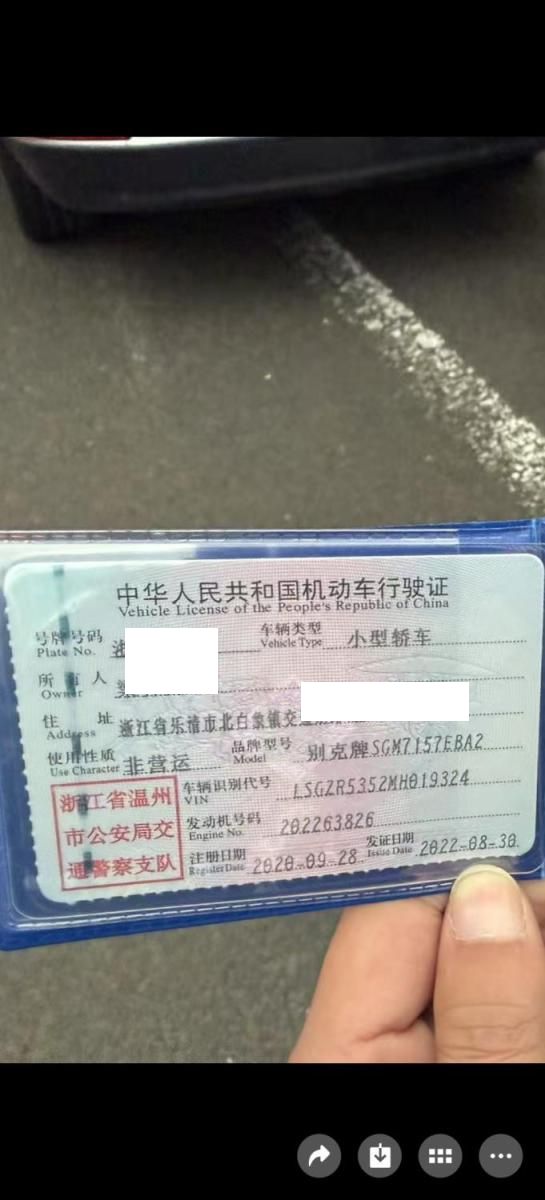 中华人民共和国机动车行驶证
Vehicle License of the People's Republic of China
号牌号码 浙 车辆类型 小型轿车
Plate No. Vehicle Type
所有人
Owner
住 址 浙江省乐清市北白象镇交
Address
使用性质 非营运 品牌型号 别克牌SGM7157EBA2
Use Character Model
浙江省温州
市公安局交
通警察支队
车辆识别代号 LSGZR5352MH019324
VIN
发动机号码 202263826
Engine No.
注册日期 2020-09-28 发证日期 2022-08-30
Register Date Issue Date